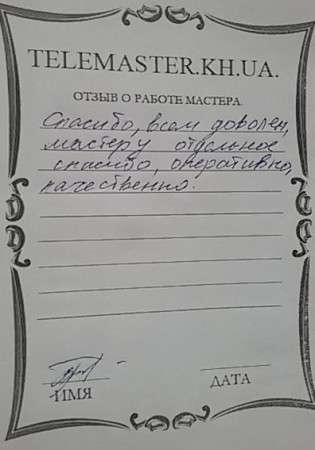 TELEMASTER.KH.UA.
ОТЗЫВ О РАБОТЕ МАСТЕРА
Спасибо, всем доволен,
мастеру отдельное
спасибо, оперативно,
качественно.
ИМЯ
ДАТА